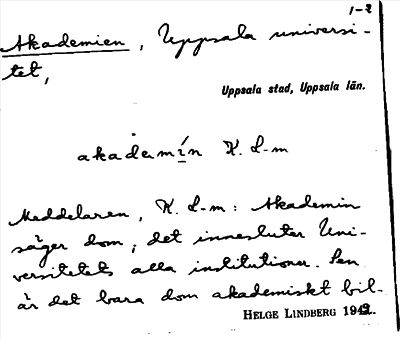 1-2
Akademien, Uppsala universi-
tet,
Uppsala stad, Uppsala län.
akademi̱n K. L-m
Meddelaren, K. L-m: Akademin
säger dom, det innesluter Uni-
versitetets alla institutioner. Sen
är det bara dom akademiskt bil-
HELGE LINDBERG 1942.